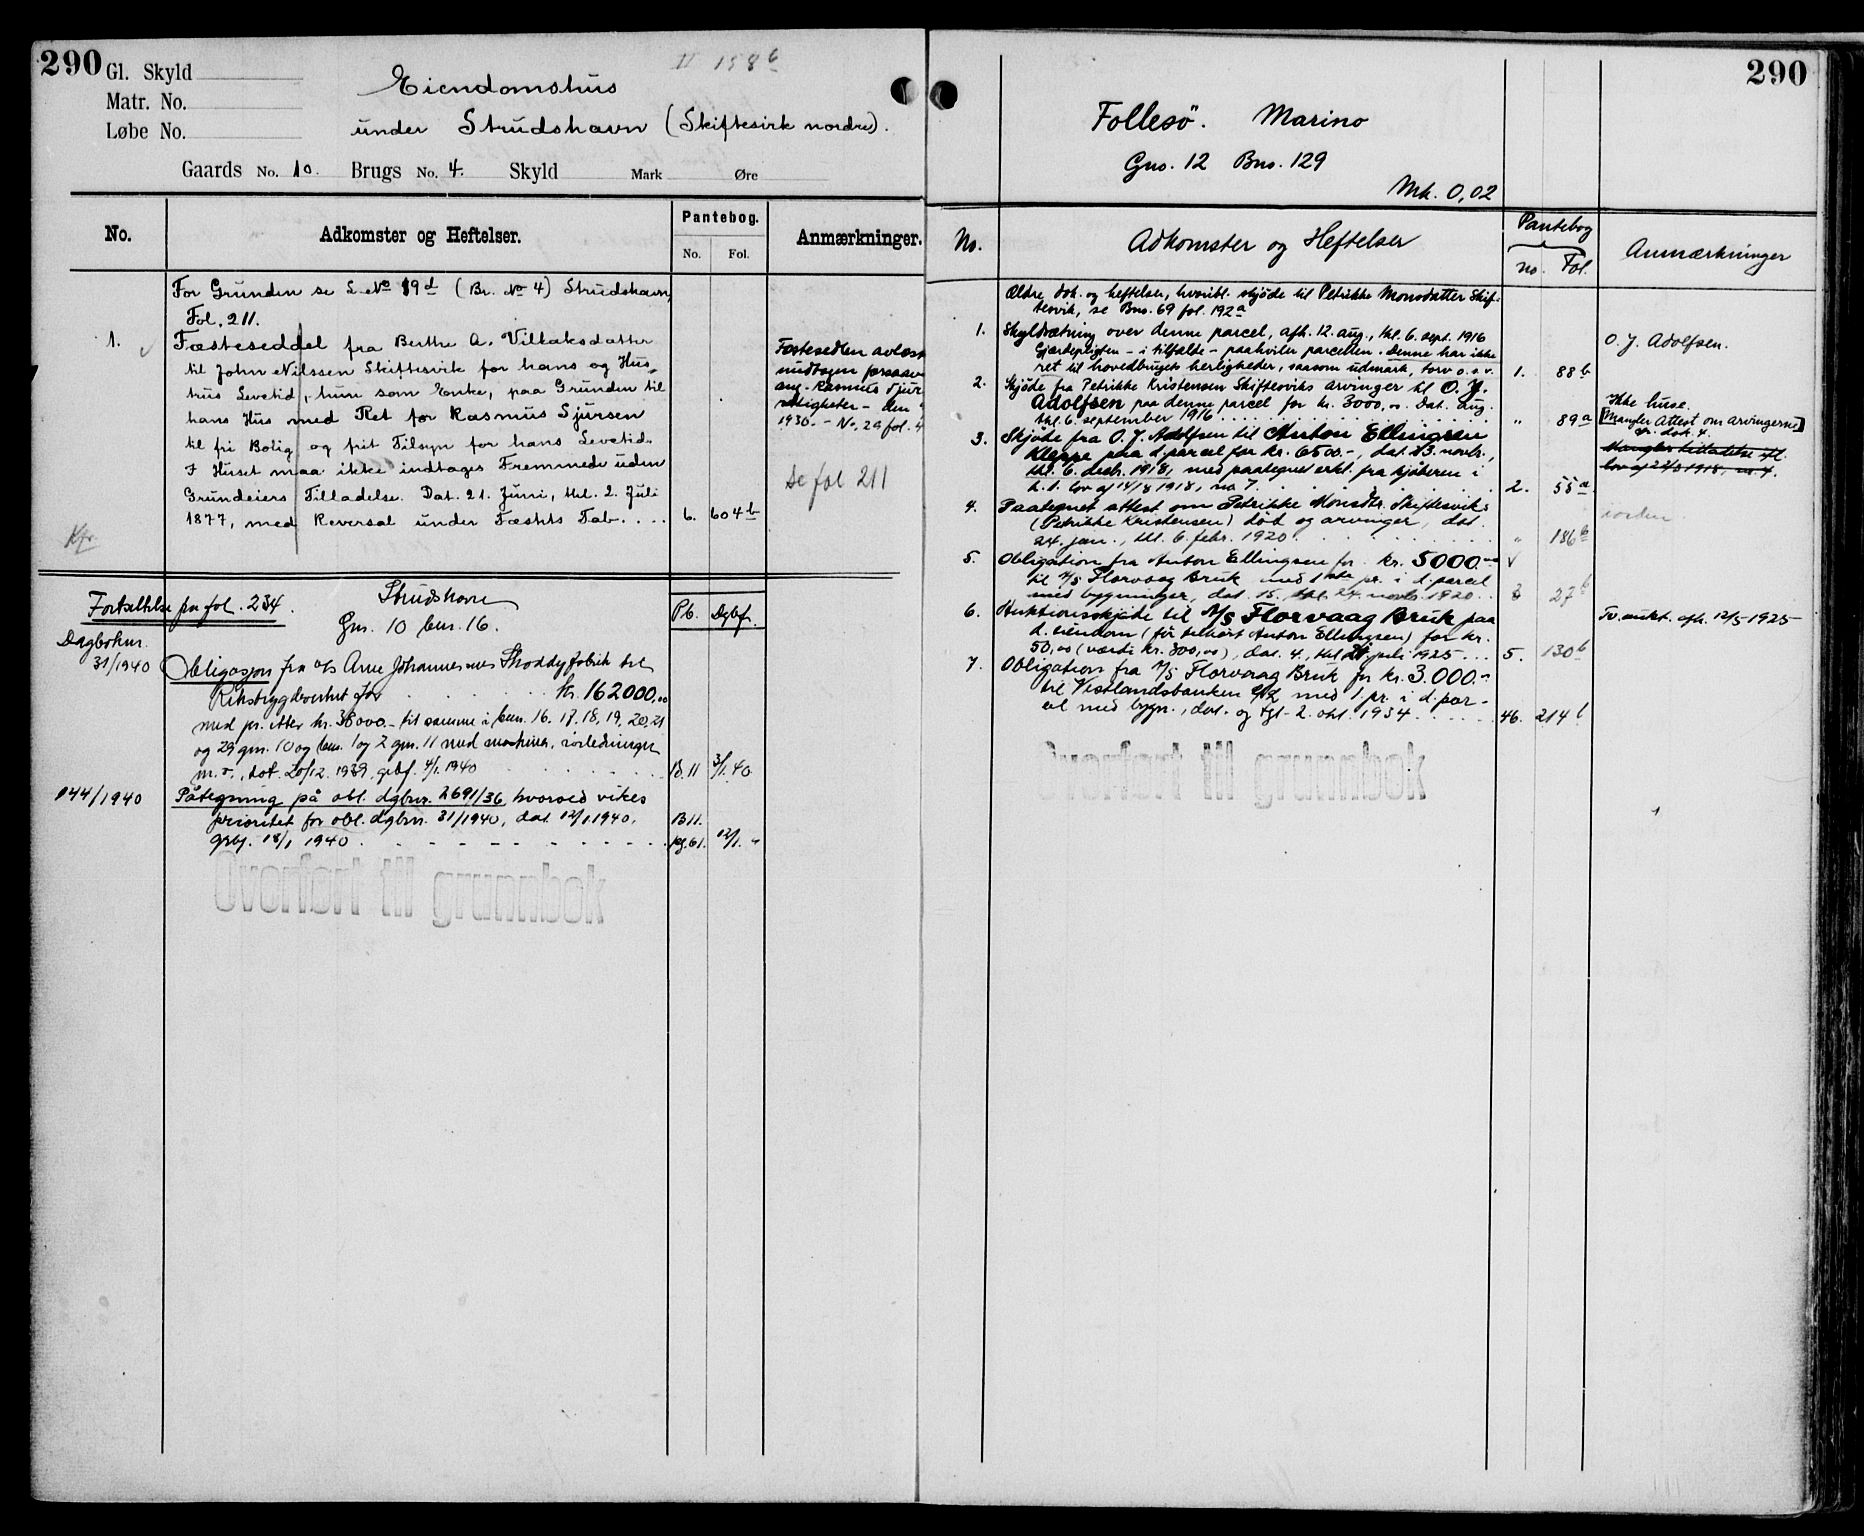 290
Gl. Skyld
Matr. No.
Løbe No.
II 158 b
Eiendomshus
under Strudshavn (Skiftesvik nordre).
Gaards No. 10. Brugs No. 4. Skyld Mark Øre
No. Adkomster og Heftelser. Pantebog. No. Fol. Anmærkninger.
For Grunden se L. No 19d (Br. No 4) Strudshavn,
Fol. 211.
1. Fæsteseddel fra Berthe A. Villaksdatter
til John Nilssen Skiftesvik for hans og Hus-
trus Levetid, hun som Enke, paa Grunden til
hans Hus med Ret for Rasmus Sjursen
til fri Bolig og frit Tilsyn for hans Levetid.
I Huset maa ikke indtages Fremmede uden
Grundeiers Tilladelse. Dat. 21. Juni, thl. 2. Juli
1877, med Reversal under Fæstets Tab. . . . 6. 604 b
Fæstesedlen avlæst
undtagen forsaav
ang. Rasmus Sjurs
rettigheter - den
1930. - No. 29 fol. 4
Se fol 211
Kfr.
Fortsættelse fra fol. 234.
Strudshavn
Gnr. 10 bnr. 16.
Pb. Dgbf.
Dagboknr.
31/1940 Obligasjon fra a/s Arne Johannesens Shoddyfabrik til
Riksbygdverket for kr. 162000,00
med pr. etter kr. 38000.- til samme i bnr. 16. 17. 18, 19, 20, 21
og 29 gnr. 10 og bnr. 1 og 2 gnr. 11 med maskiner, rørledninger
m. v., dat. 20/12. 1939, grbf. 4/1. 1940 B. 11 3/1. 40
144/1940 Påtegning på obl. dgbnr. 2691/36, hvorved vikes
prioritet for obl. dgbnr. 31/1940, dat. 12/1 1940,
grbf. 18/1 1940 B 11. pg. 61. 12/1. "
Overført til grunnbok
290
Follesö. Marino
Gno. 12 Bno. 129
Mk. 0,02
No. Adkomster og Heftelser Pantebog no. Fol. Anmærkninger
Ældre dok. og heftelser, hvoribl. skjøde til Petrikke Monsdatter Skif-
tesvik, se Bno. 69 fol. 192 a
1. Skyldsætning over denne parcel, afh. 12. aug., thl. 6. sept. 1916
Gjærdepligten - i tilfælde - paahviler parcellen. Denne har ikke
ret til hovedbrugets herligheder, saasom udmark, torv o.s.v. 1. 88 b
O. J. Adolfsen.
2. Skjøde fra Petrikke Kristensen Skiftesviks arvinger til O. J.
Adolfsen paa denne parcel for kr. 3000,00. Dat. aug.
thl. 6. september 1916 " 89 a
Ikke huse.
[Mangler Attest om arvingerne]
se dok. 4.
3. Skjøde fra O. J. Adolfsen til Anton Ellingsen
Kleppe paa d. parcel for kr. 6500.-, dat. 23. novb.,
thl. 6. decb. 1918, med paategnet erkl. fra kjøberen i
h. t. lov af 14/8 1918, no 7. 2. 55 a
Mangler tilladelse efl.
4. Paategnet attest om Petrikke Monsdtr. Skiftesviks
(Petrikke Kristensen) død og arvinger, dat.
24. jan., thl. 6. febr. 1920. " 186 b
5. Obligation fra Anton Ellingsen for kr. 5000.-
til A/S Florvaag Bruk med 1ste pr. i d. parcel
med bygninger, dat. 15., thl. 24. novb. 1920. . 3 27 b
6. Auktionsskjøde til A/S Florvaag Bruk paa
d. eiendom (før tilhørt Anton Ellingsen) for kr.
50,00 (værdi kr. 300,00), dat. 4., thl. 21. juli 1925 . . . 5. 130 b
Tv. aukt. afh. 12/5-1925
7. Obligation fra A/S Florvaag Bruk for kr. 3.000.-
til Vestlandsbanken A/L med 1. pr. i d. par-
cel med bygn., dat. og tgl. 2. okt. 1934. . . . . 46. 214 b
Overført til grunnbok